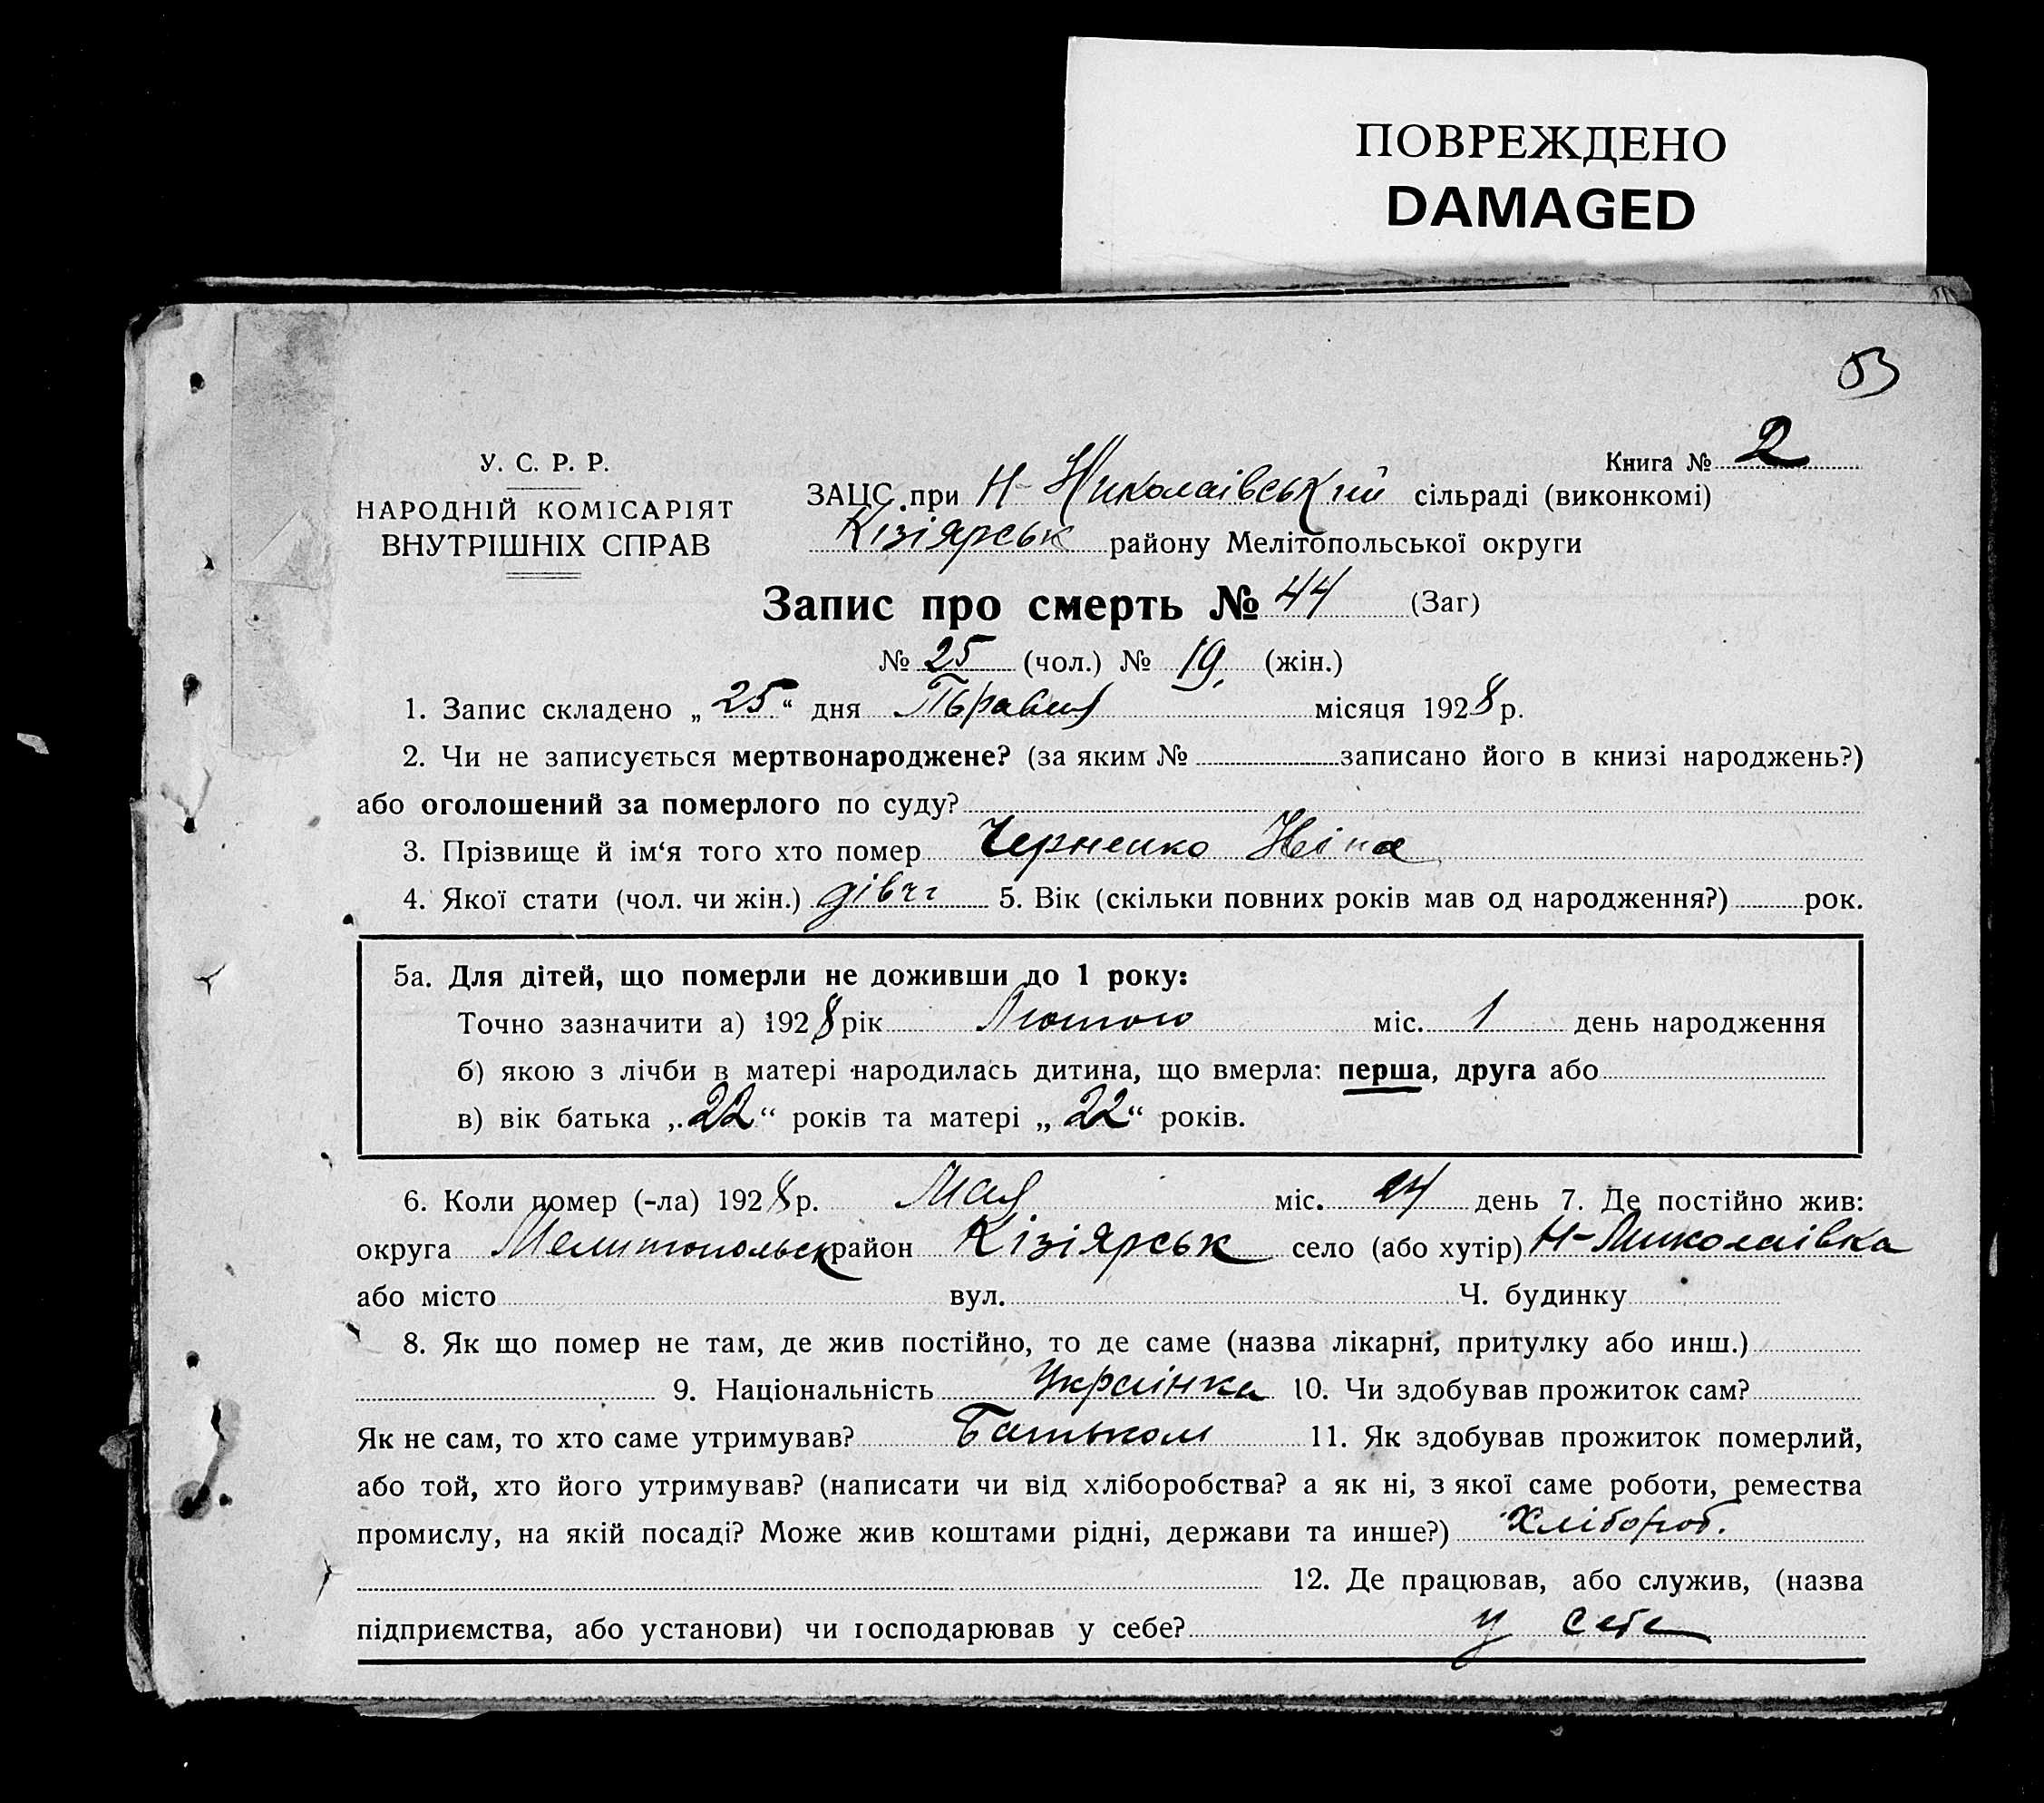 ПОВРЕЖДЕНО
DAMAGED
53
У. С. Р. Р.
НАРОДНІЙ КОМІСАРІЯТ
ВНУТРІШНІХ СПРАВ
Книга № 2
ЗАЦС при Н-Николаівський сільраді (виконкомі)
Кізіярськ району Мелітопольської округи
Запис про смерть № 44 (Заг)
№ 25 (чол.) № 19. (жін.)
1. Запис складено „ 25 “ дня місяця 1928 р.
2. Чи не записується мертвонароджене? (за яким № записано його в книзі народжень?)
або оголошений за померлого по суду?
3. Прізвище й ім‘я того хто помер Черненко Ніна
4. Якої стати (чол. чи жін.) дівч 5. Вік (скільки повних років мав од народження?) рок.
5а. Для дітей, що померли не доживши до 1 року:
Точно зазначити а) 1928 рік Лютого міс. 1 день народження
б) якою з лічби в матері народилась дитина, що вмерла: перша, друга або
в) вік батька „ 22 “ років та матері „ 22 “ років.
6. Коли помер (-ла) 1928 р. Мая міс. 24 день 7. Де постійно жив:
округа Мелитопольськ район Кізіярськ село (або хутір) Н-Миколаівка
або місто вул. Ч. будинку
8. Як що помер не там, де жив постійно, то де саме (назва лікарні, притулку або инш.)
9. Національність Українка 10. Чи здобував прожиток сам?
Як не сам, то хто саме утримував? Батьком 11. Як здобував прожиток померлий,
або той, хто його утримував? (написати чи від хліборобства? а як ні, з якої саме роботи, ремества
промислу, на якій посаді? Може жив коштами рідні, держави та инше?) Хлібороб.
12. Де працював, або служив, (назва
підприємства, або установи) чи господарював у себе? у себе